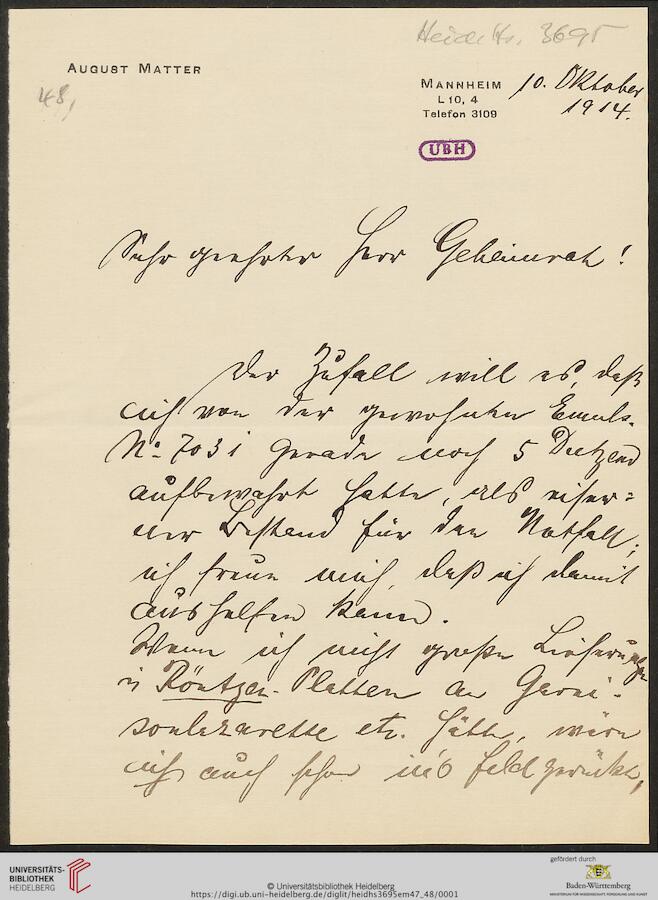 Heid. Hs. 3695
AUGUST MATTER
48,
MANNHEIM
L 10, 4
Telefon 3109
10. Oktober
1914.
UBH
Sehr geehrter Herr Geheimrat!
Der Zufall will es, daß
ich von der gewohnten Emuls.
No 7031 gerade noch 5 Dutzend
aufbewahrt hatte, als eiser=
ner Bestand für den Notfall;
ich freue mich, daß ich damit
aushelfen kann.
Wenn ich nicht große Lieferungen
in Röntgen-Platten an Garni-
sonlazarette etc. hätte, wäre
ich auch schon ins Feld gerückt,
UNIVERSITÄTS-
BIBLIOTHEK
HEIDELBERG
© Universitätsbibliothek Heidelberg
https://digi.ub.uni-heidelberg.de/diglit/heidhs3695em47_48/0001
gefördert durch
Baden-Württemberg
MINISTERIUM FÜR WISSENSCHAFT, FORSCHUNG UND KUNST